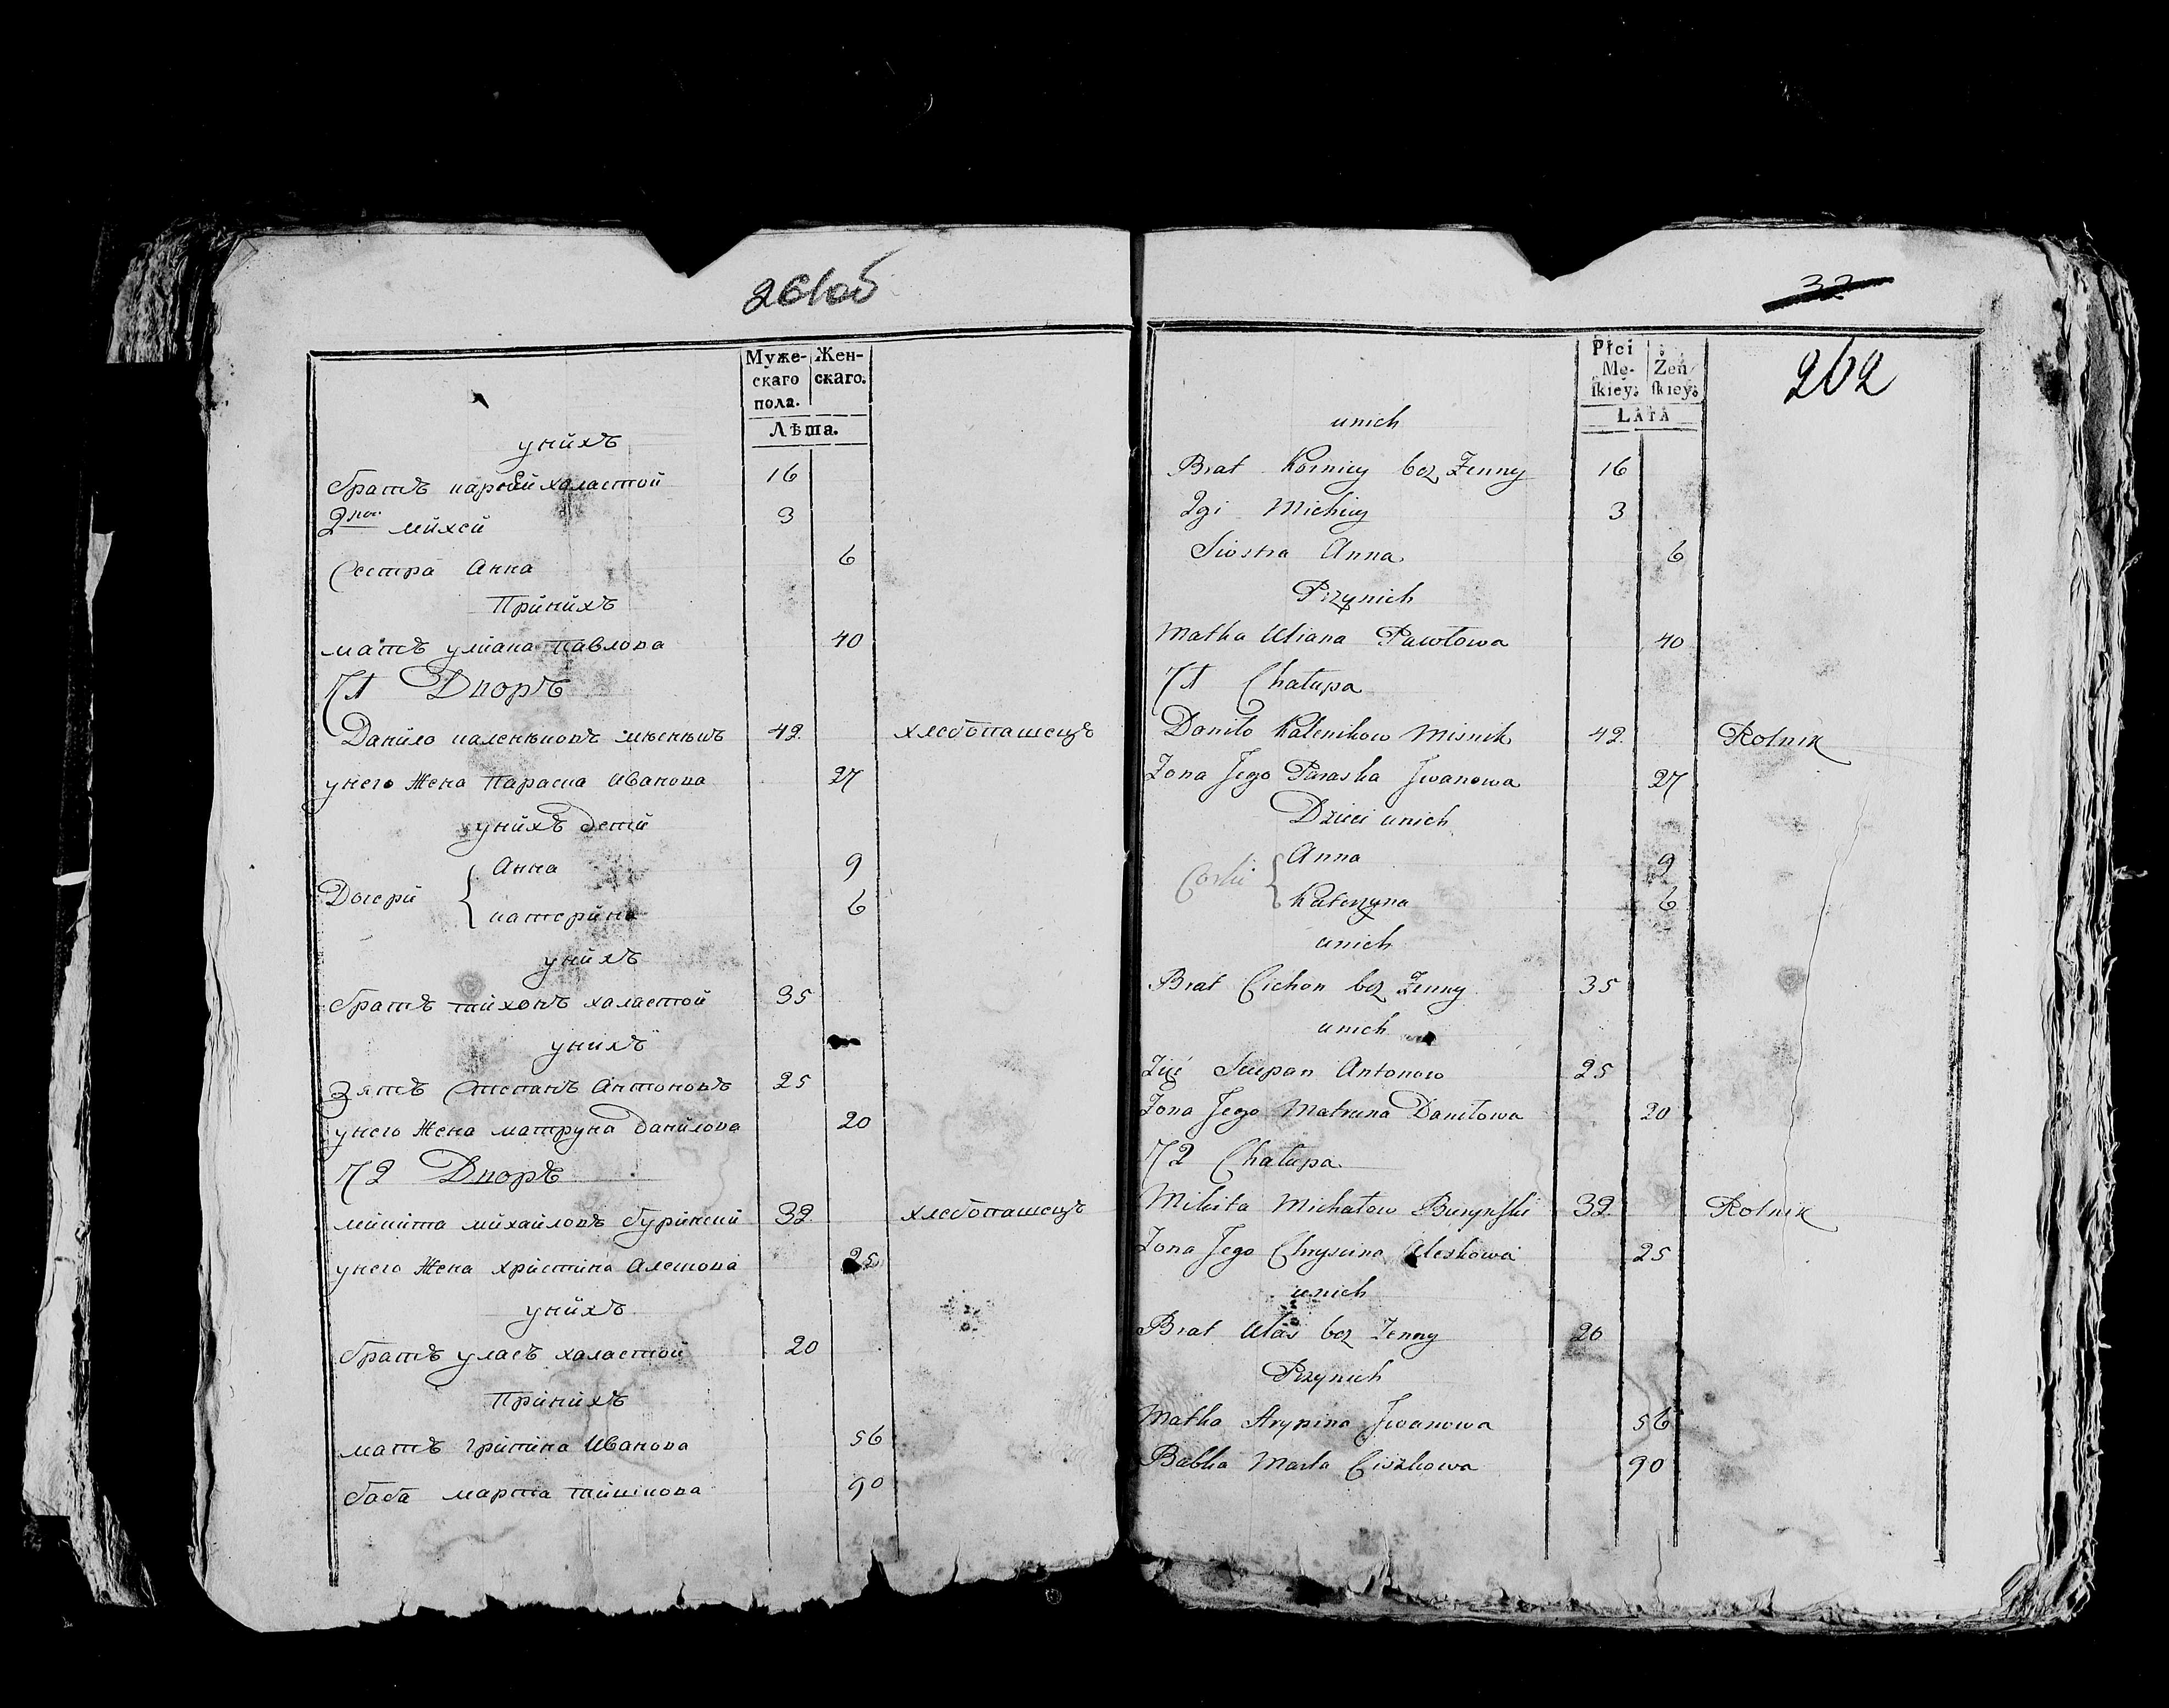 261об
Муже-
скаго
пола.
Жен-
скаго.
Лѣта.
унихъ
братъ карнѣй халастой 16
2гой михей 3
Сестра Анна 6
Принихъ
матъ уліана павлова 40
71 Дворъ
Данило каленіковъ 42 хлебопашецъ
унего Жена параска Иванова 27
унихъ дети
Дочери { Анна 9
катерина 6
унихъ
братъ тихонъ халастой 35
унихъ
Зятъ Степанъ Антоновъ 25
унего Жена матруна данилова 20
72 Дворъ
микита михайловъ буринский 32 хлебопашецъ
унего Жена христина Алешкова 25
унихъ
братъ уласъ халастой 20
Принихъ
матъ грипина Иванова 56
баба марта тишкова 90
32
262
Płci
Mę-
skiey.
Żeń
skiey.
LATA
unich
Brat Korniey bez Zenny 16
2gi Michiey 3
Siostra Anna 6
Przynich
Matka Uliana Pawłowa 40
71 Chałupa
Daniło Kalenikow Misnik 42 Rolnik
Zona Jego Paraska Jwanowa 27
Dzieci unich
Corki { Anna 9
Katerzyna 6
unich
Brat Cichon bez Zenny 35
unich
Zięć Sciepan Antonow 25
Zona Jego Matruna Daniłowa 20
72 Chałupa
Mikita Michałow Burynski 32 Rolnik
Zona Jego Chryscina Aleskowa 25
unich
Brat Ułas bez Zenny 20
Przynich
Matka Arypina Jwanowa 56
Babka Marta Ciszkowa 90